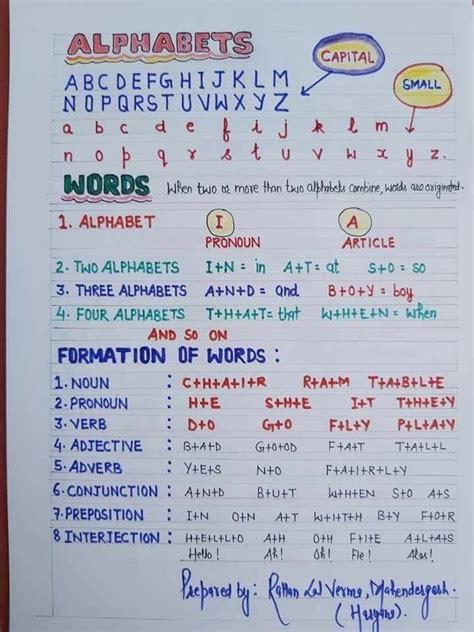 ALPHABETS
CAPITAL
A B C D E F G H I J K L M
N O P Q R S T U V W X Y Z
SMALL
a b c d e f i j k l m
n o p q r s t u v w x y z.
WORDS When two or more than two alphabets combine, words are originated.
1. ALPHABET I A
PRONOUN ARTICLE
2. TWO ALPHABETS I+N = in A+T = at S+O = so
3. THREE ALPHABETS A+N+D = and B+O+Y = boy
4. FOUR ALPHABETS T+H+A+T = that W+H+E+N = when
AND SO ON
FORMATION OF WORDS :
1. NOUN : C+H+A+I+R R+A+M T+A+B+L+E
2. PRONOUN : H+E S+H+E I+T T+H+E+Y
3. VERB : D+O G+O F+L+Y P+L+A+Y
4. ADJECTIVE : B+A+D G+O+OD F+A+T T+A+L+L
5. ADVERB : Y+E+S N+O F+A+I+R+L+Y
6. CONJUNCTION : A+N+D B+U+T W+H+EN S+O A+S
7. PREPOSITION : I+N O+N A+T W+I+T+H B+Y F+O+R
8 INTERJECTION : H+E+L+L+O A+H O+H F+I+E A+L+A+S
Hello ! Ah! Oh! Fie ! Alas!
Prepared by: Rattan Lal Verma, Mahendergarh.
(Haryana).